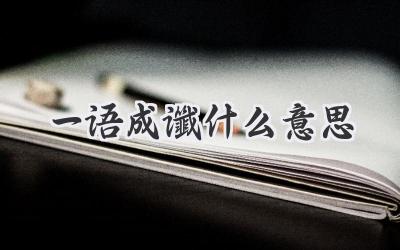 一语成谶什么意思